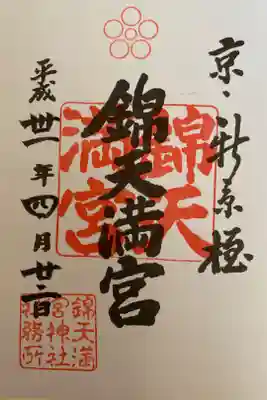 京・新京極
錦天満宮
錦天満宮
平成卅一年四月廿二日
錦天満
宮神社
社務所